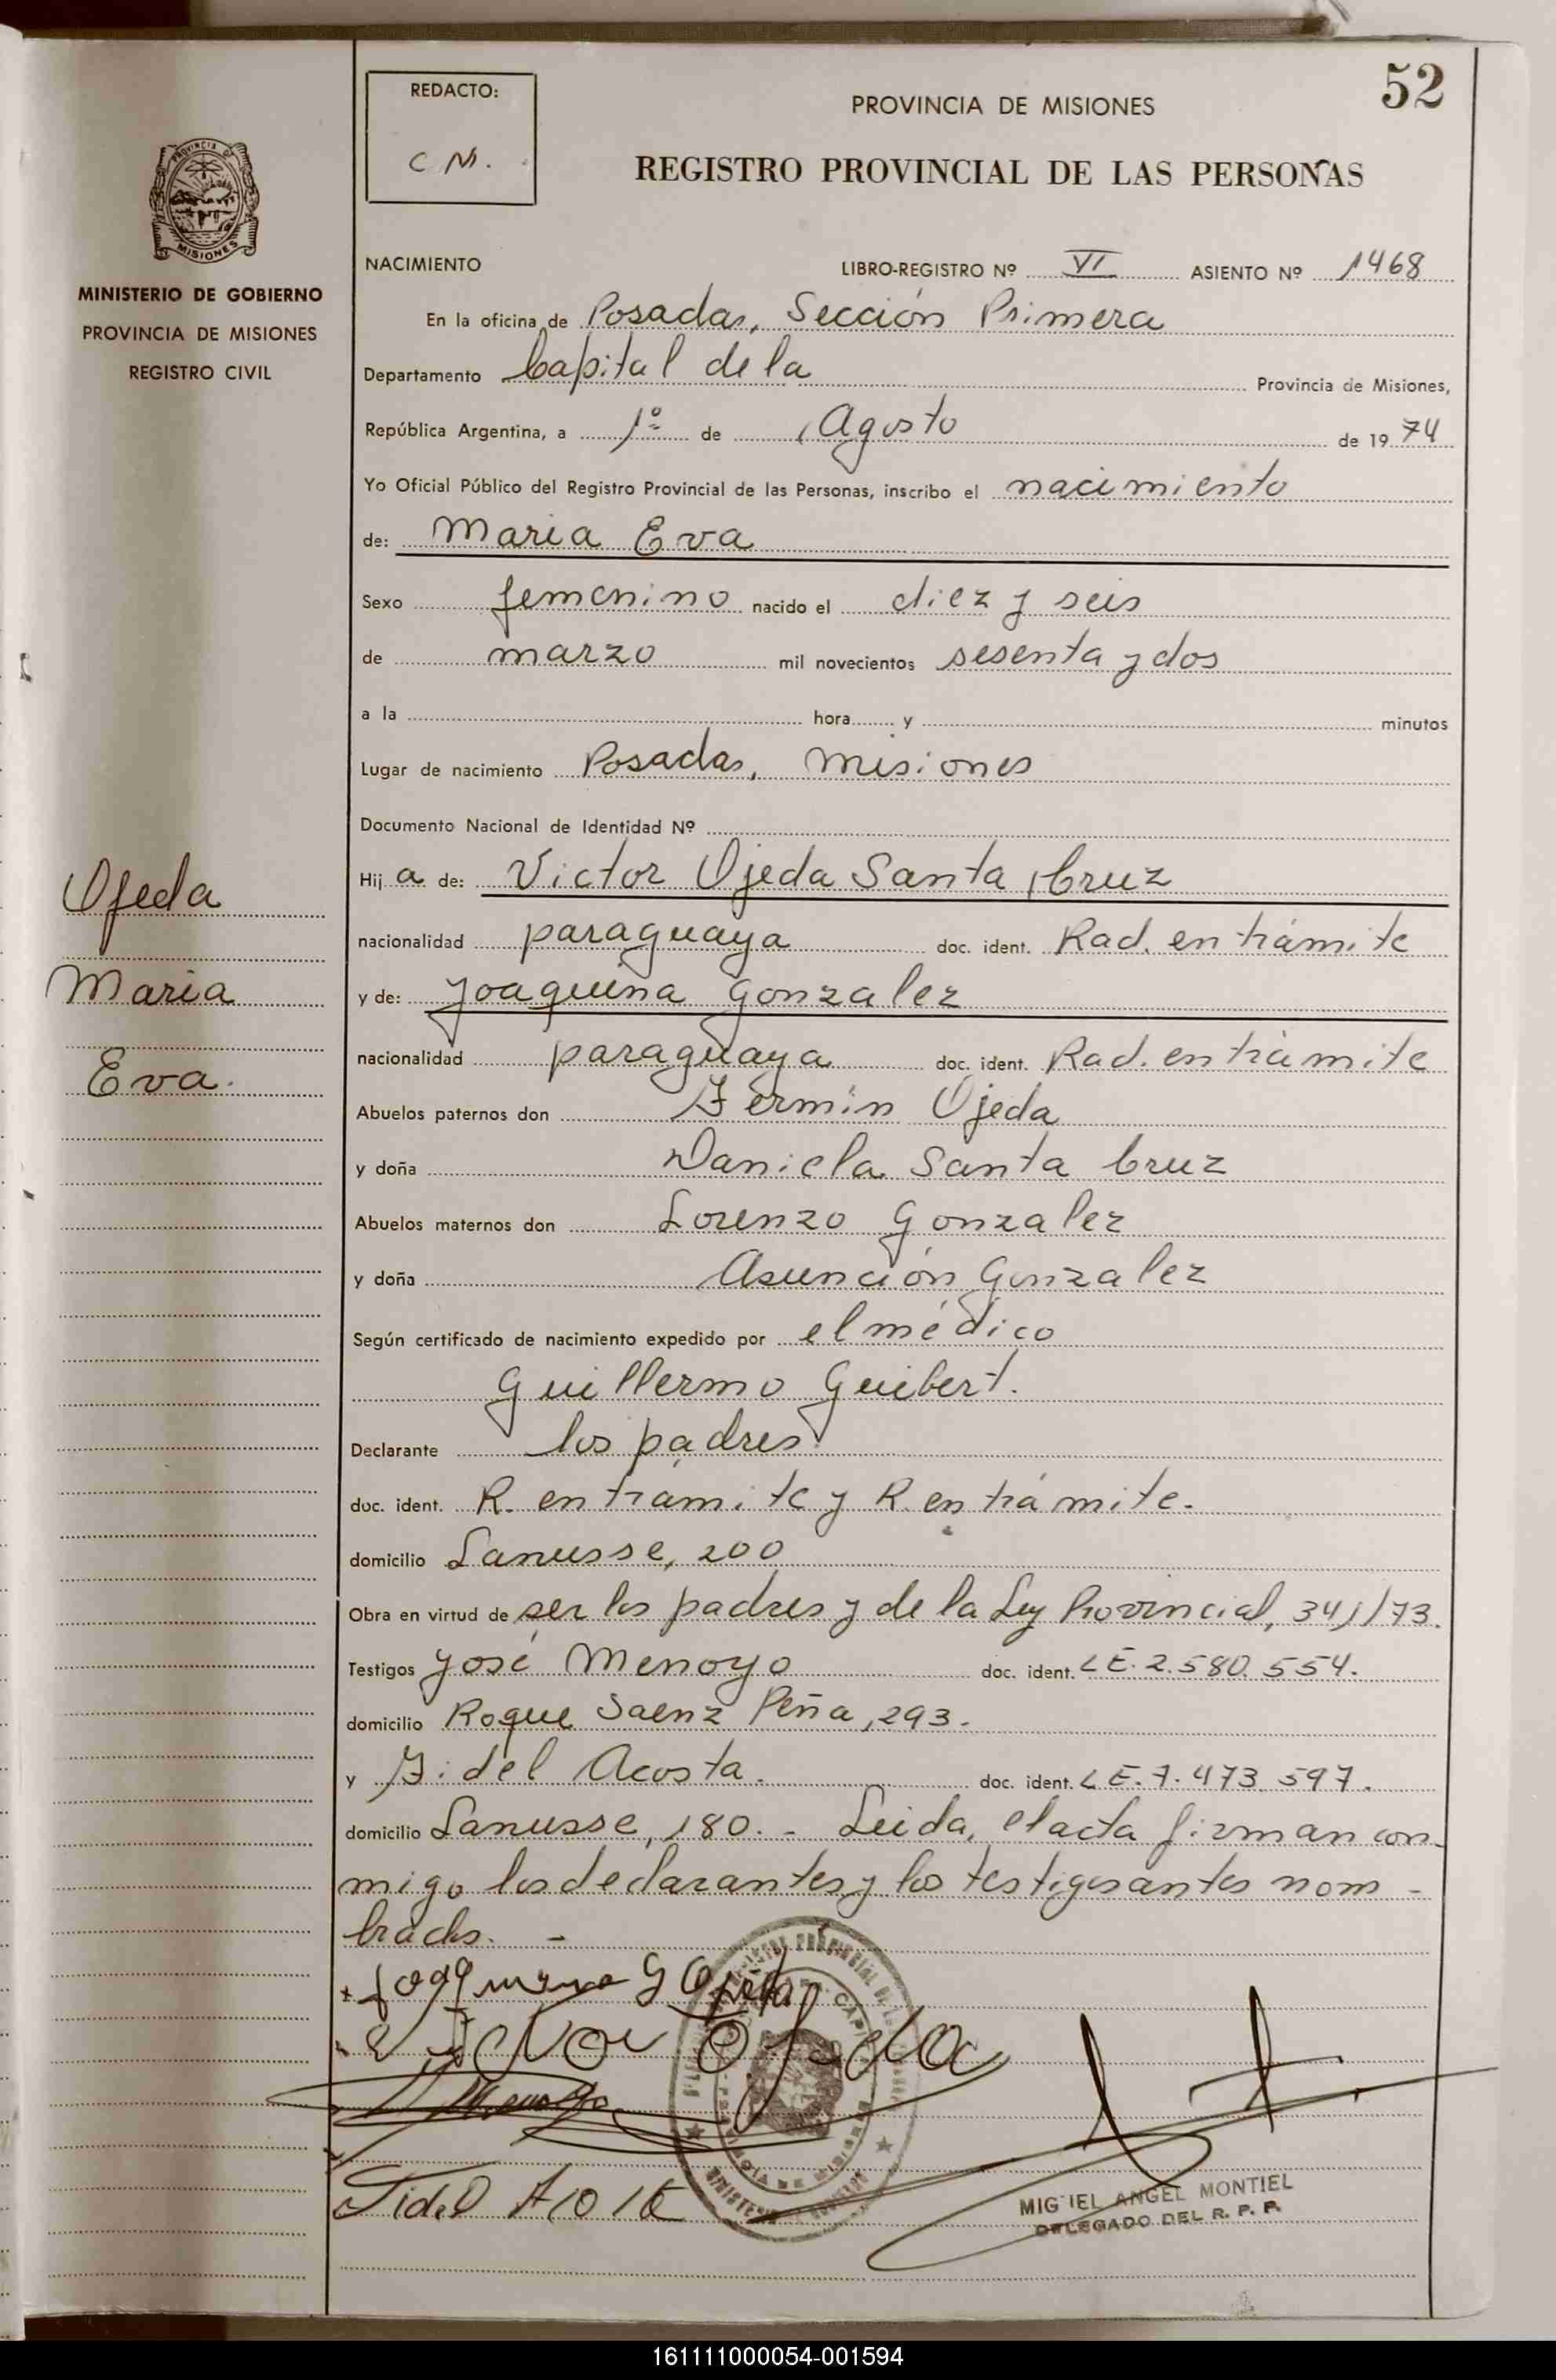 52
REDACTO:
C M.
PROVINCIA DE MISIONES
REGISTRO PROVINCIAL DE LAS PERSONAS
PROVINCIA DE
MISIONES
MINISTERIO DE GOBIERNO
PROVINCIA DE MISIONES
REGISTRO CIVIL
NACIMIENTO LIBRO-REGISTRO Nº VI ASIENTO Nº 1468
En la oficina de Posadas, Sección Primera
Departamento Capital de la Provincia de Misiones,
República Argentina, a 1º de Agosto de 1974
Yo Oficial Público del Registro Provincial de las Personas, inscribo el nacimiento
de: Maria Eva
Sexo femenino nacido el diez y seis
de marzo mil novecientos sesenta y dos
a la hora y minutos
Lugar de nacimiento Posadas, Misiones
Documento Nacional de Identidad Nº
Hija de: Victor Ojeda Santa Cruz
nacionalidad paraguaya doc. ident. Rad. en trámite
y de: Joaquina Gonzalez
nacionalidad paraguaya doc. ident. Rad. en trámite
Abuelos paternos don Fermín Ojeda
y doña Daniela Santa Cruz
Abuelos maternos don Lorenzo Gonzalez
y doña Asunción Gonzalez
Según certificado de nacimiento expedido por el médico
Guillermo Guibert.
Declarante los padres
doc. ident. R. en trámite y R. en trámite.
domicilio Lanusse, 200
Obra en virtud de ser los padres y de la Ley Provincial, 341/73.
Testigos José Menoyo doc. ident. L E. 2.580.554.
domicilio Roque Saenz Peña, 293.
y Fidel Acosta. doc. ident. L E. 7.473.597.
domicilio Lanusse, 180. - Leida, el acta firman con-
migo los declarantes y los testigos antes nom-
brados. -
Ojeda
Maria
Eva.
Victor Ojeda
MIGUEL ANGEL MONTIEL
DELEGADO DEL R. P. P.
161111000054-001594